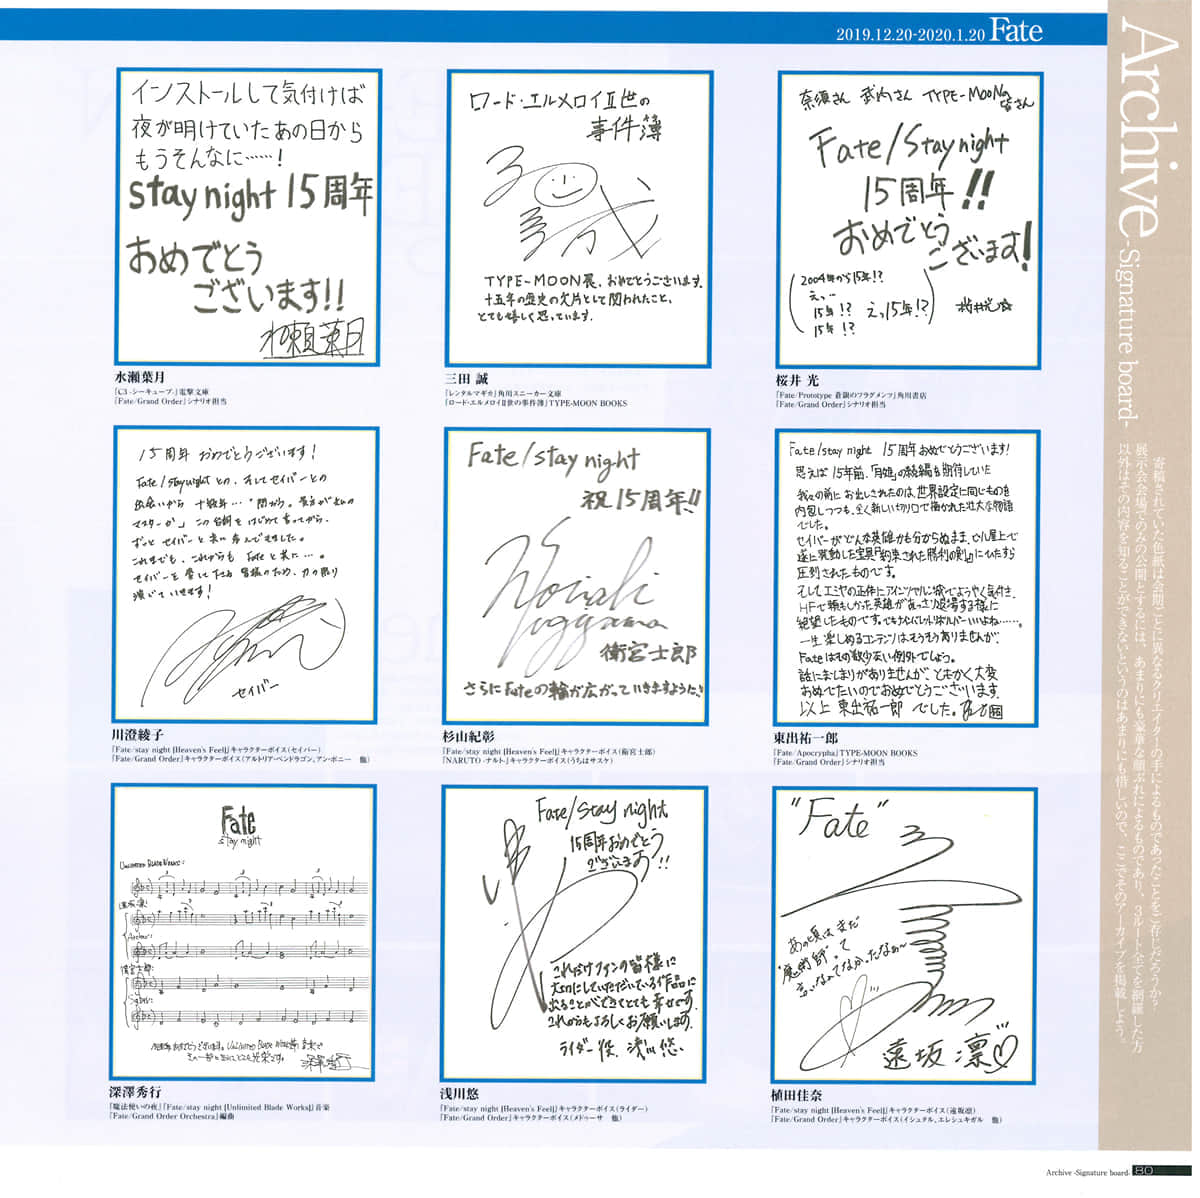 2019.12.20-2020.1.20 Fate
Archive -Signature board-
寄稿されていた色紙は会期ごとに異なるクリエイターの手によるものであったことをご存じだろうか?
展示会会場でのみの公開とするには、あまりにも豪華な顔ぶれによるものであり、3ルート全てを網羅した方
以外はその内容を知ることができないというのはあまりにも惜しいので、ここでそのアーカイブを掲載しよう。
インストールして気付けば
夜が明けていたあの日から
もうそんなに……!
stay night 15周年
おめでとう
ございます!!
水瀬葉月
水瀬葉月
『C3 -シーキューブ-』電撃文庫
『Fate/Grand Order』シナリオ担当
ロード・エルメロイⅡ世の
事件簿
TYPE-MOON展、おめでとうございます。
十五年の歴史の欠片として関われたこと、
とても嬉しく思っています。
三田 誠
『レンタルマギカ』角川スニーカー文庫
『ロード・エルメロイⅡ世の事件簿』TYPE-MOON BOOKS
奈須さん 武内さん TYPE-MOONの
皆さん
Fate/Stay night
15周年!!
おめでとう
ございます!
2004年から15年!?
えっ…
15年!? えっ15年!?
15年!?
桜井光☆
桜井 光
『Fate/Prototype 蒼銀のフラグメンツ』角川書店
『Fate/Grand Order』シナリオ担当
15周年 おめでとうございます!
Fate/stay nightとの、そしてセイバーとの
出会いから 十数年…“問おう。貴方が私の
マスターか”この台詞をはじめて言ってから、
ずっと セイバーと共に歩んできました。
これまでも、これからも Fateと共に…。
セイバーを愛して下さる皆様のため、力の限り
演じていきます!
セイバー
川澄綾子
『Fate/stay night [Heaven's Feel]』キャラクターボイス(セイバー)
『Fate/Grand Order』キャラクターボイス(アルトリア・ペンドラゴン、アン・ボニー 他)
Fate/stay night
祝15周年!!
Noriaki
Sugiyama
衛宮士郎
さらにFateの輪が広がっていきますように!
杉山紀彰
『Fate/stay night [Heaven's Feel]』キャラクターボイス(衛宮士郎)
『NARUTO -ナルト-』キャラクターボイス(うちはサスケ)
Fate/stay night 15周年おめでとうございます!
思えば15年前、「月姫」の続編を期待していた
我々の前にお出しされたのは、世界設定に同じものを
内包しつつも、全く新しい切り口で描かれた壮大な物語
でした。
セイバーがどんな英雄かも分からぬまま、ビル屋上で
遂に発動した宝具『約束された勝利の剣』にひたすら
圧倒されたものです。
そしてエミヤの正体にアインツベルン城でようやく気付き、
HFで頼もしかった英雄があっさり退場する様に
絶望したものです。でもナインライブズブレイドワークスいいよね……。
一生楽しめるコンテンツはそうそうありませんが、
Fateはその数少ない例外でしょう。
話にまとまりがありませんが、ともかく大変
おめでたいのでおめでとうございます。
以上 東出祐一郎 でした。
東出祐一郎
『Fate/Apocrypha』TYPE-MOON BOOKS
『Fate/Grand Order』シナリオ担当
Fate
stay night
UNLIMITED BLADE WORKS:
遠坂凛:
Archer:
衛宮士郎:
Saber:
15周年おめでとうございます。UNLIMITED BLADE WORKS、音楽で
その一部になれてとても光栄です。
深澤秀行
深澤秀行
『魔法使いの夜』『Fate/stay night [Unlimited Blade Works]』音楽
『Fate/Grand Order Orchestra』編曲
Fate/stay night
15周年おめでとう
ございます!!
これだけファンの皆様に
大切にしていただいている作品に
出ることができてとても幸せです。
これからもよろしくお願いします。
ライダー役、浅川悠
浅川悠
『Fate/stay night [Heaven's Feel]』キャラクターボイス(ライダー)
『Fate/Grand Order』キャラクターボイス(メドゥーサ 他)
“Fate”
あの頃はまだ
“魔術師”って
言いなれてなかったなぁ〜
遠坂 凛♡
植田佳奈
『Fate/stay night [Heaven's Feel]』キャラクターボイス(遠坂凛)
『Fate/Grand Order』キャラクターボイス(イシュタル、エレシュキガル 他)
Archive -Signature board- 80